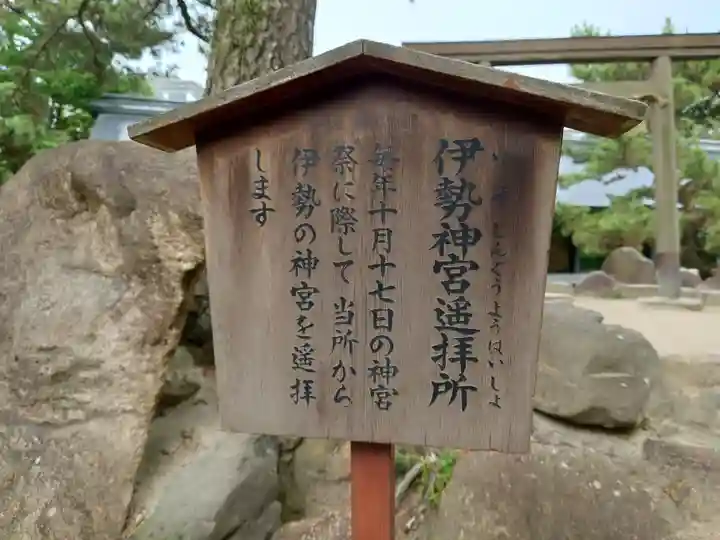 伊勢神宮遥拝所
いせじんぐうようはいしょ
毎年十月十七日の神宮
祭に際して当所から
伊勢の神宮を遥拝
します